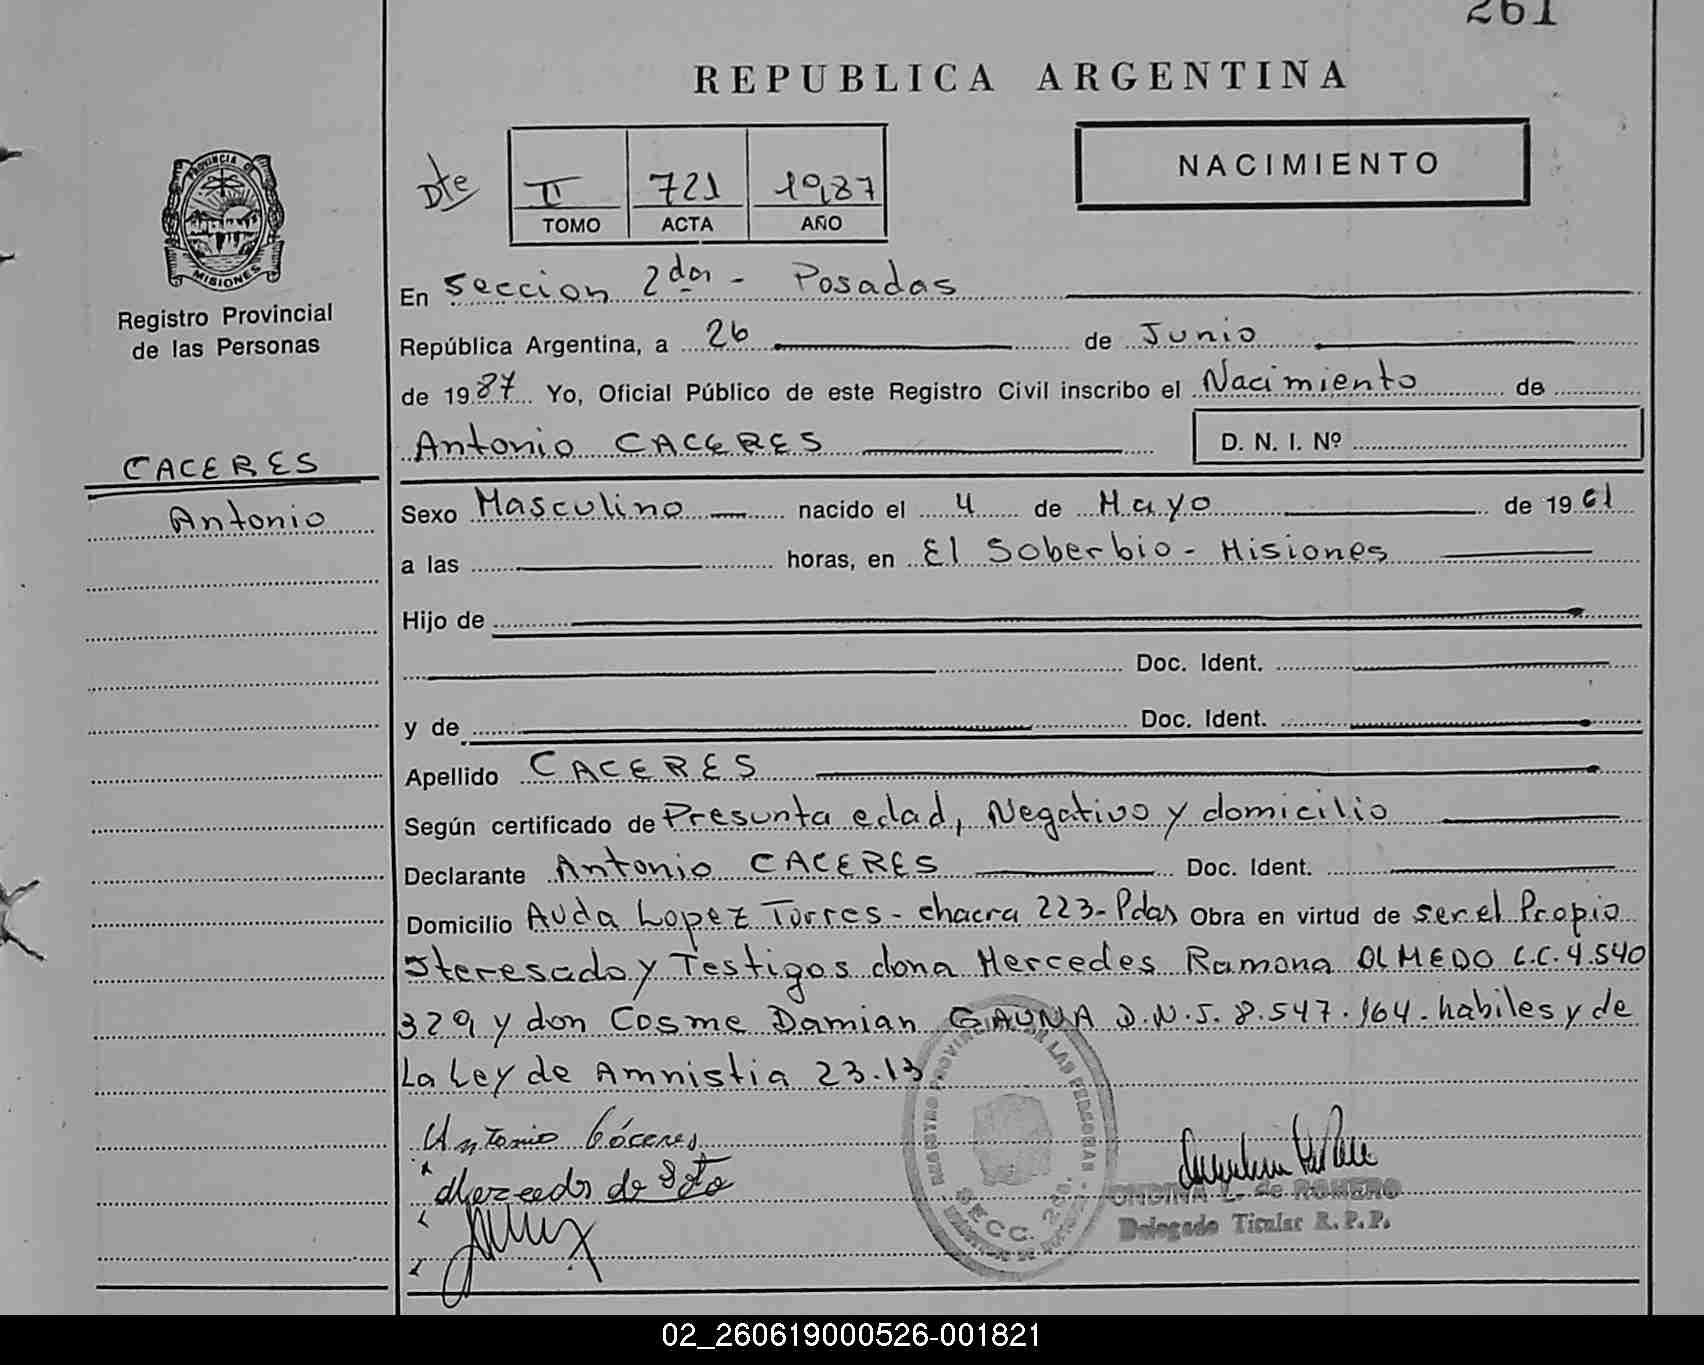 261
REPUBLICA ARGENTINA
Dte
II 721 1987
TOMO ACTA AÑO
NACIMIENTO
PROVINCIA DE
MISIONES
Registro Provincial
de las Personas
CACERES
Antonio
En Seccion 2da - Posadas
República Argentina, a 26 de Junio
de 1987 Yo, Oficial Público de este Registro Civil inscribo el Nacimiento de
Antonio CACERES D. N. I. Nº
Sexo Masculino nacido el 4 de Mayo de 1961
a las horas, en El Soberbio - Misiones
Hijo de
Doc. Ident.
y de Doc. Ident.
Apellido CACERES
Según certificado de Presunta edad, Negativo y domicilio
Declarante Antonio CACERES Doc. Ident.
Domicilio Avda Lopez Torres - chacra 223 - Pdas Obra en virtud de ser el Propio
Iteresado y Testigos dona Mercedes Ramona OLMEDO L.C. 4.540
329 y don Cosme Damian GAUNA D.N.I. 8.547.164. habiles y de
La Ley de Amnistia 23.13
Antonio Cáceres
Mercedes de Soto
REGISTRO PROVINCIAL DE LAS PERSONAS
SECC. 2da.
ONDINA L. de ROMERO
Delegado Titular R.P.P.
02_260619000526-001821